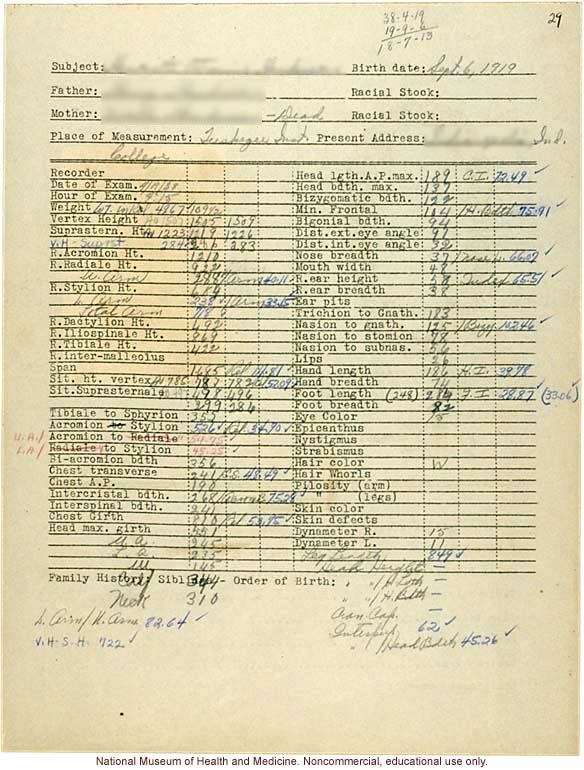 29
38-4-19
19-9-6
18-7-13
Subject: Birth date: Sept. 6, 1919
Father: Racial Stock:
Mother: -Dead Racial Stock:
Place of Measurement: Tuskegee Inst. Present Address: Ind.
College
Recorder Head lgth.A.P.max. 189 C.I. 72.49 ✓
Date of Exam. 4/19/38 Head bdth. max. 137
Hour of Exam. Bizygomatic bdth. 122
Weight Min. Frontal 104 /H.Bdth 75.91
Vertex Height 1505 1509 Bigonial bdth. 94
Suprastern. Ht. 1223 1219 1226 Dist.ext.eye angle 97
V.H-Suprst. 284 283 Dist.int.eye angle 32
R.Acromion Ht. 1210 Nose breadth 37 66.07
R.Radiale Ht. 922 Mouth width 48
R.ear height 58 Index 65.51
R.Stylion Ht. 684 R.ear breadth 38
L. Arm 238 Ear pits
Total Arm Trichion to Gnath. 183
R.Dactylion Ht. 492 Nasion to gnath. 125 /Bizyg. 102.46 ✓
R.Iliospinale Ht. 869 Nasion to stomion 78
R.Tibiale Ht. 422 Nasion to subnas. 56
R.inter-malleolus Lips 26
Span 1685 Rel 111.81 ✓ Hand length 186 H.I. 39.78
Sit. ht. vertex 785 783 782 Rel 52.09 Hand breadth 74
Sit.Suprasternale 498 496 Foot length (248) 284 F.I. 28.87 (33.06)
284 Foot breadth 82
Tibiale to Sphyrion 350 Eye Color
Acromion to Stylion 526 ✓ Rel 34.90 ✓ Epicanthus
U.A./ Acromion to Radiale 54.75 Nystigmus
L.A./ Radiale to Stylion 45.25 ✓ Strabismus
Bi-acromion bdth 356 Hair color W
Chest transverse 241 48.49 ✓ Hair Whorls
Chest A.P. 190 Pilosity (arm)
Intercristal bdth. 268 75.28 " (legs)
Interspinal bdth. 241 Skin color
Chest Girth 810 Rel 53.75 ✓ Skin defects
Head max. girth 551 Dynameter R. 15
U.A. 245 Dynameter L. 11
L.A. 235 Leg Length 849 ✓
W 145 Head Height -
Family History: Siblings- Order of Birth: " "/H.Lgth -
Calf 344 " "/H.Bdth -
Neck 310 Cran. Cap. -
L. Arm/U. Arm 82.64 ✓ Interpup. 62 ✓
V.H-S.H. 722 ✓ " /Head Bdth 45.26 ✓
National Museum of Health and Medicine. Noncommercial, educational use only.